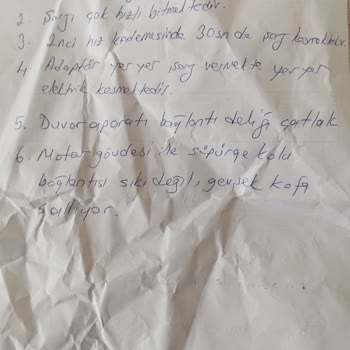 2. Şarjı çok hızlı bitmektedir.
3. 2nci hız kademesinde 30 sn de şarj kesmektedir.
4. Adaptör yer yer şarj vermekte yer yer
elektrik kesmektedir.
5. Duvar aparatı bağlantı deliği çatlak
6. Motor gövdesi ile süpürge kolu
bağlantısı sıkı değil, gevşek kafa
sallıyor.